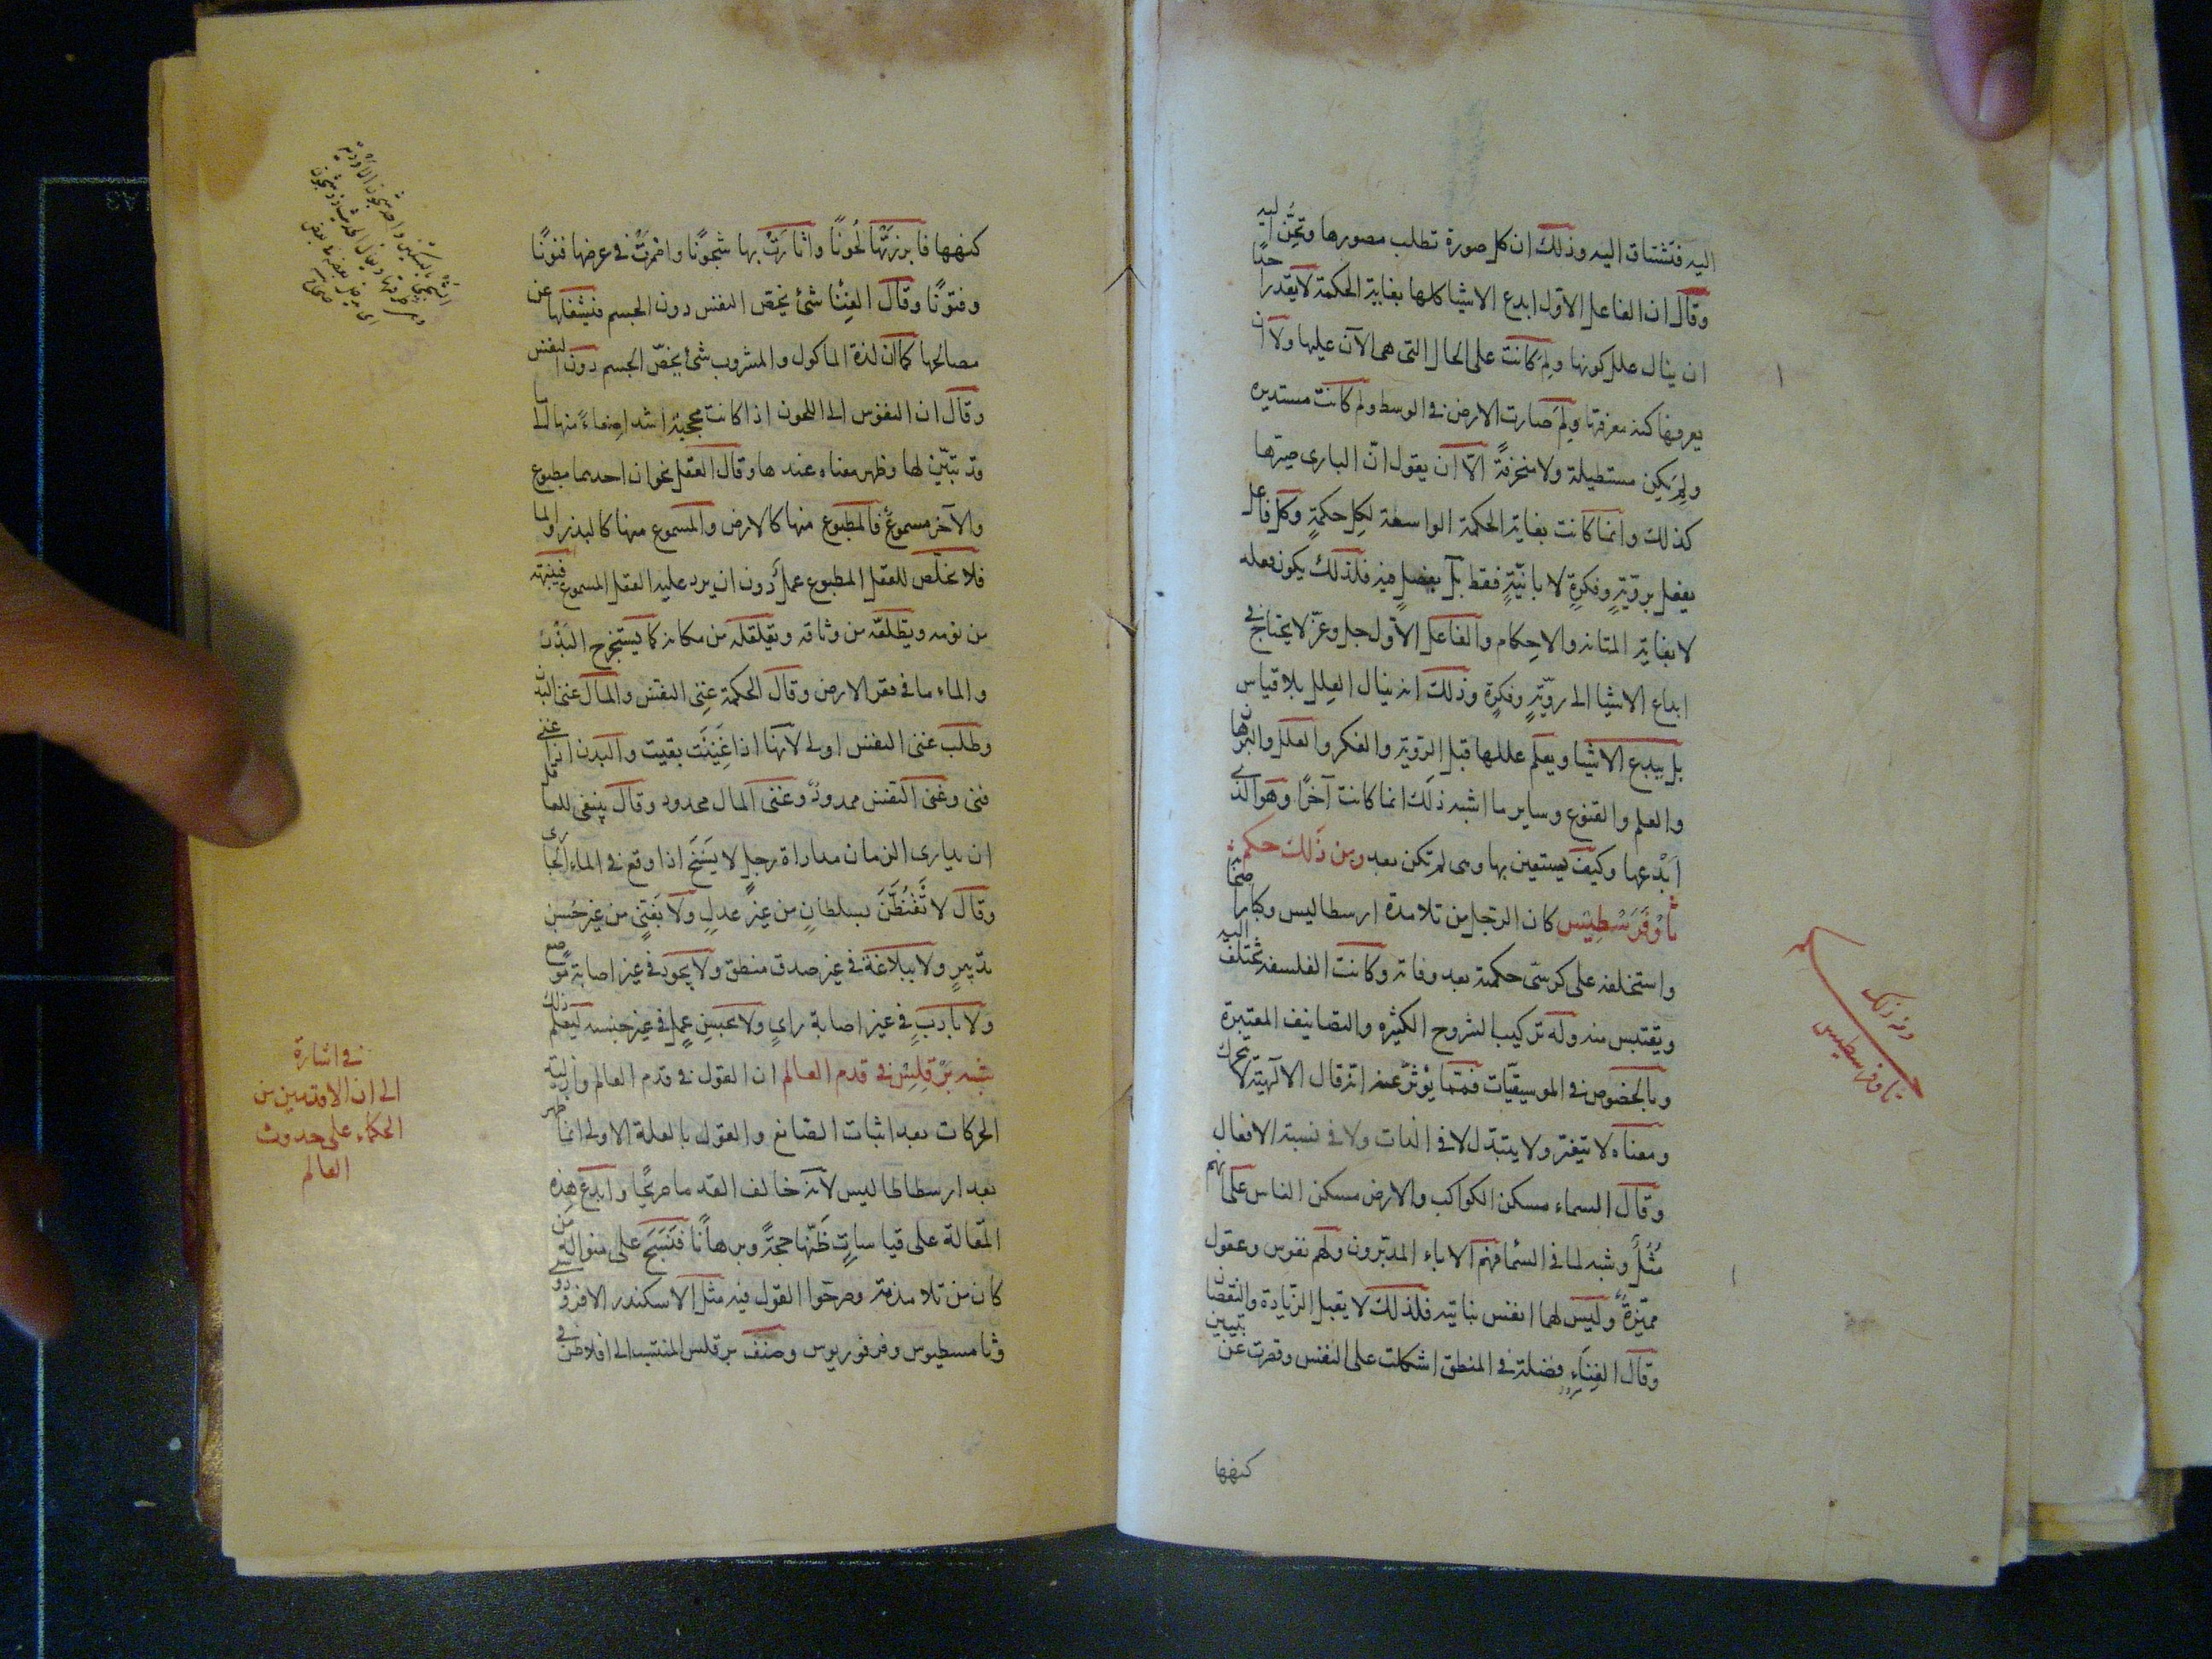 اليه فتشتاق اليه وذلك ان كل صورة تطلب مصورها وتحن اليه
وقال ان الفاعل الاول ابدع الاشيا كلها بغاية الحكمة لا يقدر احدا
ان ينال علل كونها ولم كانت على الحال التى هى الآن عليها ولا ان
يعرفها كنه معرفتها ولم صارت الارض فى الوسط ولم كانت مستديره
ولم يكن مستطيلة ولا منحرفة الا ان يقول ان البارى صيرها
كذلك وانما كانت بغاية الحكمة الواسعة لكل حكمة وكل فاعل
يفعل بروية وفكرة لا بانية فقط بل بفضل فيه فلذلك يكون فعله
لا بغاية المتانه والاحكام والفاعل الاول جل وعز لا يحتاج فى
ابداع الاشيا الى روية وفكرة وذلك انه ينال العلل بلا قياس
بل يبدع الاشيا ويعلم عللها قبل الروية والفكر والعلل والبرهان
والعلم والقنوع وساير ما اشبه ذلك انما كانت آخرا وهو الذى
ابدعها وكيف يستعين بها وهى لم تكن بعد ومن ذلك حكم
ثاوفرسطيس كان الرجل من تلامذة ارسطاليس وكبار اصحابه
واستخلفه على كرسى حكمته بعد وفاته وكانت الفلسفه تختلف اليه
ويقتبس منه وله تركيب الشروح الكثيره والتصانيف المعتبرة
وبالخصوص فى الموسيقيات فمما يؤثر عنه انه قال الآلهية لا يتحرك
ومعناه لا يتغير ولا يتبدل لا فى الذات ولا فى نسبة الافعال
وقال السماء مسكن الكواكب والارض مسكن الناس على انهم
مثل وشبه لما فى السما فهم الاباء المدبرون ولهم نفوس وعقول
مميزة وليس لهما انفس نباتيه فلذلك لا يقبل الزيادة والنقصان
وقال الغناء فضلة فى المنطق اشكلت على النفس وقصرت عن تبيين
كنهها
ومن ذلك
ثاوفرسطيس
كنهها فابرزتها لحونا واثارت بها شجونا واضمرت فى عرضها فنونا
وفتونا وقال الغنا شئ يخص النفس دون الجسم فيشغلها عن
مصالحها كما ان لذة الماكول والمشروب شئ يخص الجسم دون النفس
وقال ان النفوس الى اللحون اذا كانت محجبة اشد اصغاء منها الى ما
قد تبين لها وظهر معناه عندها وقال العقل نحوان احدهما مطبوع
والآخر مسموع فالمطبوع منها كالارض والمسموع منها كالبذر والما
فلا يخلص للعقل المطبوع عمل دون ان يرد عليه العقل المسموع فينبهه
من نومه ويطلقه من وثاقه ويقلقله من مكانه كما يستخرج البذر
والماء ما فى قعر الارض وقال الحكمة غنى النفس والمال غنى البدن
وطلب غنى النفس اولى لانها اذا غنيت بقيت والبدن اذا غنى
فنى وغنى النفس ممدود وغنى المال محدود وقال ينبغى للعاقل
ان يدارى الزمان مداراة رجل لا يسبح اذا وقع فى الماء الجارى
وقال لا تغبطن بسلطان من غير عدل ولا بغنى من غير حسن
تدبير ولا ببلاغة فى غير صدق منطق ولا بجود فى غير اصابة موضع
ولا بادب فى غير اصابة راى ولا بحسن عمل فى غير جنسه ليعلم ذلك
شبه برقلس فى قدم العالم ان القول فى قدم العالم وازلية
الحركات بعد اثبات الصانع والقول بالعلة الاولى انما ظهر
بعد ارسطاطاليس لانه خالف القدما صريحا وابدع هذه
المقالة على قياسات ظنها حجة وبرهانا فنسج على منواله من
كان من تلامذته وصرحوا القول فيه مثل الاسكندر الافرودوسى
وثامسطيوس وفرفوريوس وصنف برقلس المنتسب الى افلاطن فى
فى اشارة
الى ان الاقدمين من
الحكماء على حدوث
العالم